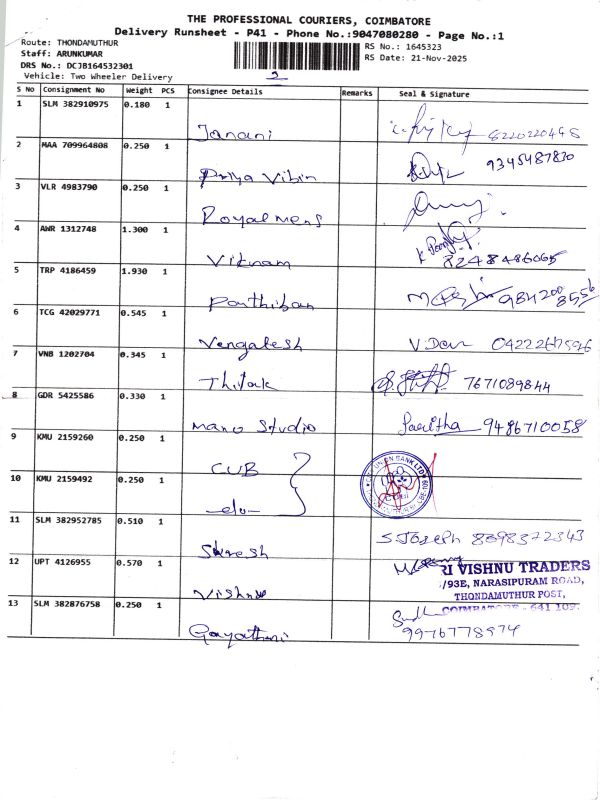 THE PROFESSIONAL COURIERS, COIMBATORE
Delivery Runsheet - P41 - Phone No.:9047080280 - Page No.:1
Route: THONDAMUTHUR
Staff: ARUNKUMAR
DRS No.: DCJB164532301
Vehicle: Two Wheeler Delivery
RS No.: 1645323
RS Date: 21-Nov-2025
S No Consignment No Weight PCS Consignee Details Remarks Seal & Signature
1 SLM 382910975 0.180 1 Janani 8220220498
2 MAA 709964808 0.250 1 Priya Vibin 9345487830
3 VLR 4983790 0.250 1 Royal mens
4 AWR 1312748 1.300 1 Vikram 8248486065
5 TRP 4186459 1.930 1 Parthiban
6 TCG 42029771 0.545 1 Vengatesh V Devi
7 VNB 1202704 0.345 1 Thilak 7671089844
8 GDR 5425586 0.330 1 Mano Studio Saritha 9486710058
9 KMU 2159260 0.250 1 CUB
10 KMU 2159492 0.250 1 -do-
11 SLM 382952785 0.510 1 Suresh S Joseph 8398372343
12 UPT 4126955 0.570 1 Vishnu
RI VISHNU TRADERS
/93E, NARASIPURAM ROAD,
THONDAMUTHUR POST,
COIMBATORE - 641 109.
13 SLM 382876758 0.250 1 Gayathri
9976778974